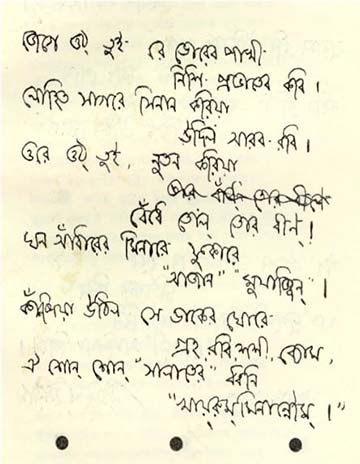 জেগে ওঠ্ তুই রে ভোরের পাখী
নিশি প্রভাতের কবি।
লোহিত সাগরে সিনান করিয়া
উদিল আরব-রবি।
ওরে ওঠ্ তুই, নূতন করিয়া
বেঁধে তোল্ তোর বীণ্!
ঘন আঁধারের মিনারে ফুকারে
"আজান" "মুয়াজ্জিন্"।
কাঁপিয়া উঠিল সে ডাকের ঘোরে
গ্রহ, রবি, শশী, ব্যোম,
ঐ শোন্ শোন্ "সালাতের" ধ্বনি
"খায়রুম্মিনান্নৌম্।"